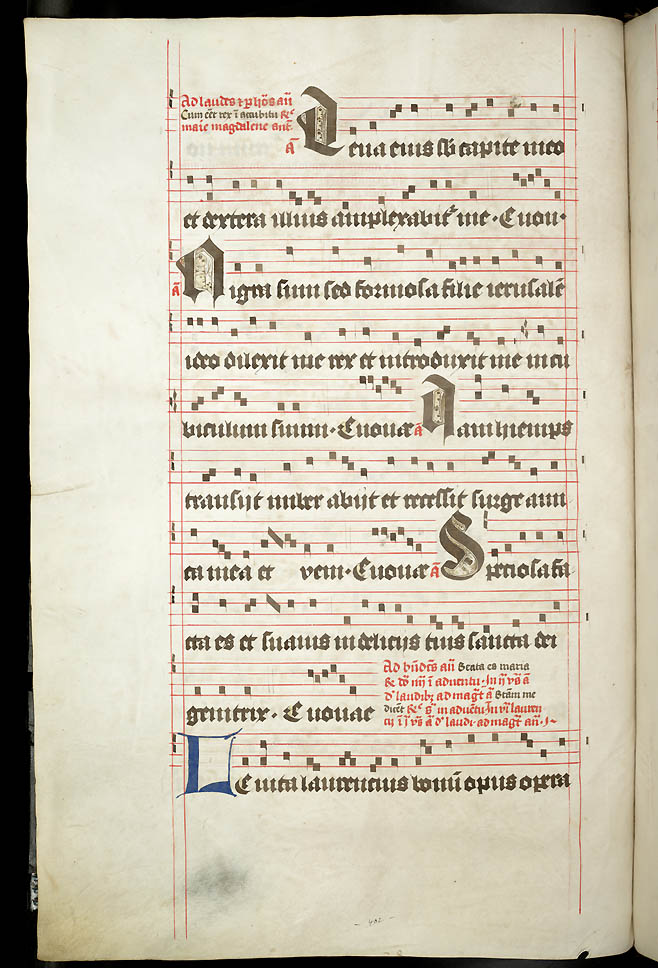 Ad laudes et p hōs añ
Cum eēt rex ī accubitu &c
marie magdalene ant.
a Leua eius sub capite meo
et dextera illius amplexabit me. Euou.
a Nigra sum sed formosa filie ierusalē
ideo dilexit me rex et introduxit me in cu
biculum suum. Euouae a Iam hiemps
transijt imber abijt et recessit surge ami
ca mea et veni. Euouae a Speciosa fa
cta es et suauis in delicijs tuis sancta dei
genitrix. Euouae
Ad bñdcs añ Beata es maria
ī aduentu. In
d' laudibz ad magt a Btām me
dicēt &c in aduētu In lauren
cij ī d' laudi. ad magt añ.
Leuita laurencius bonū opus opera
402